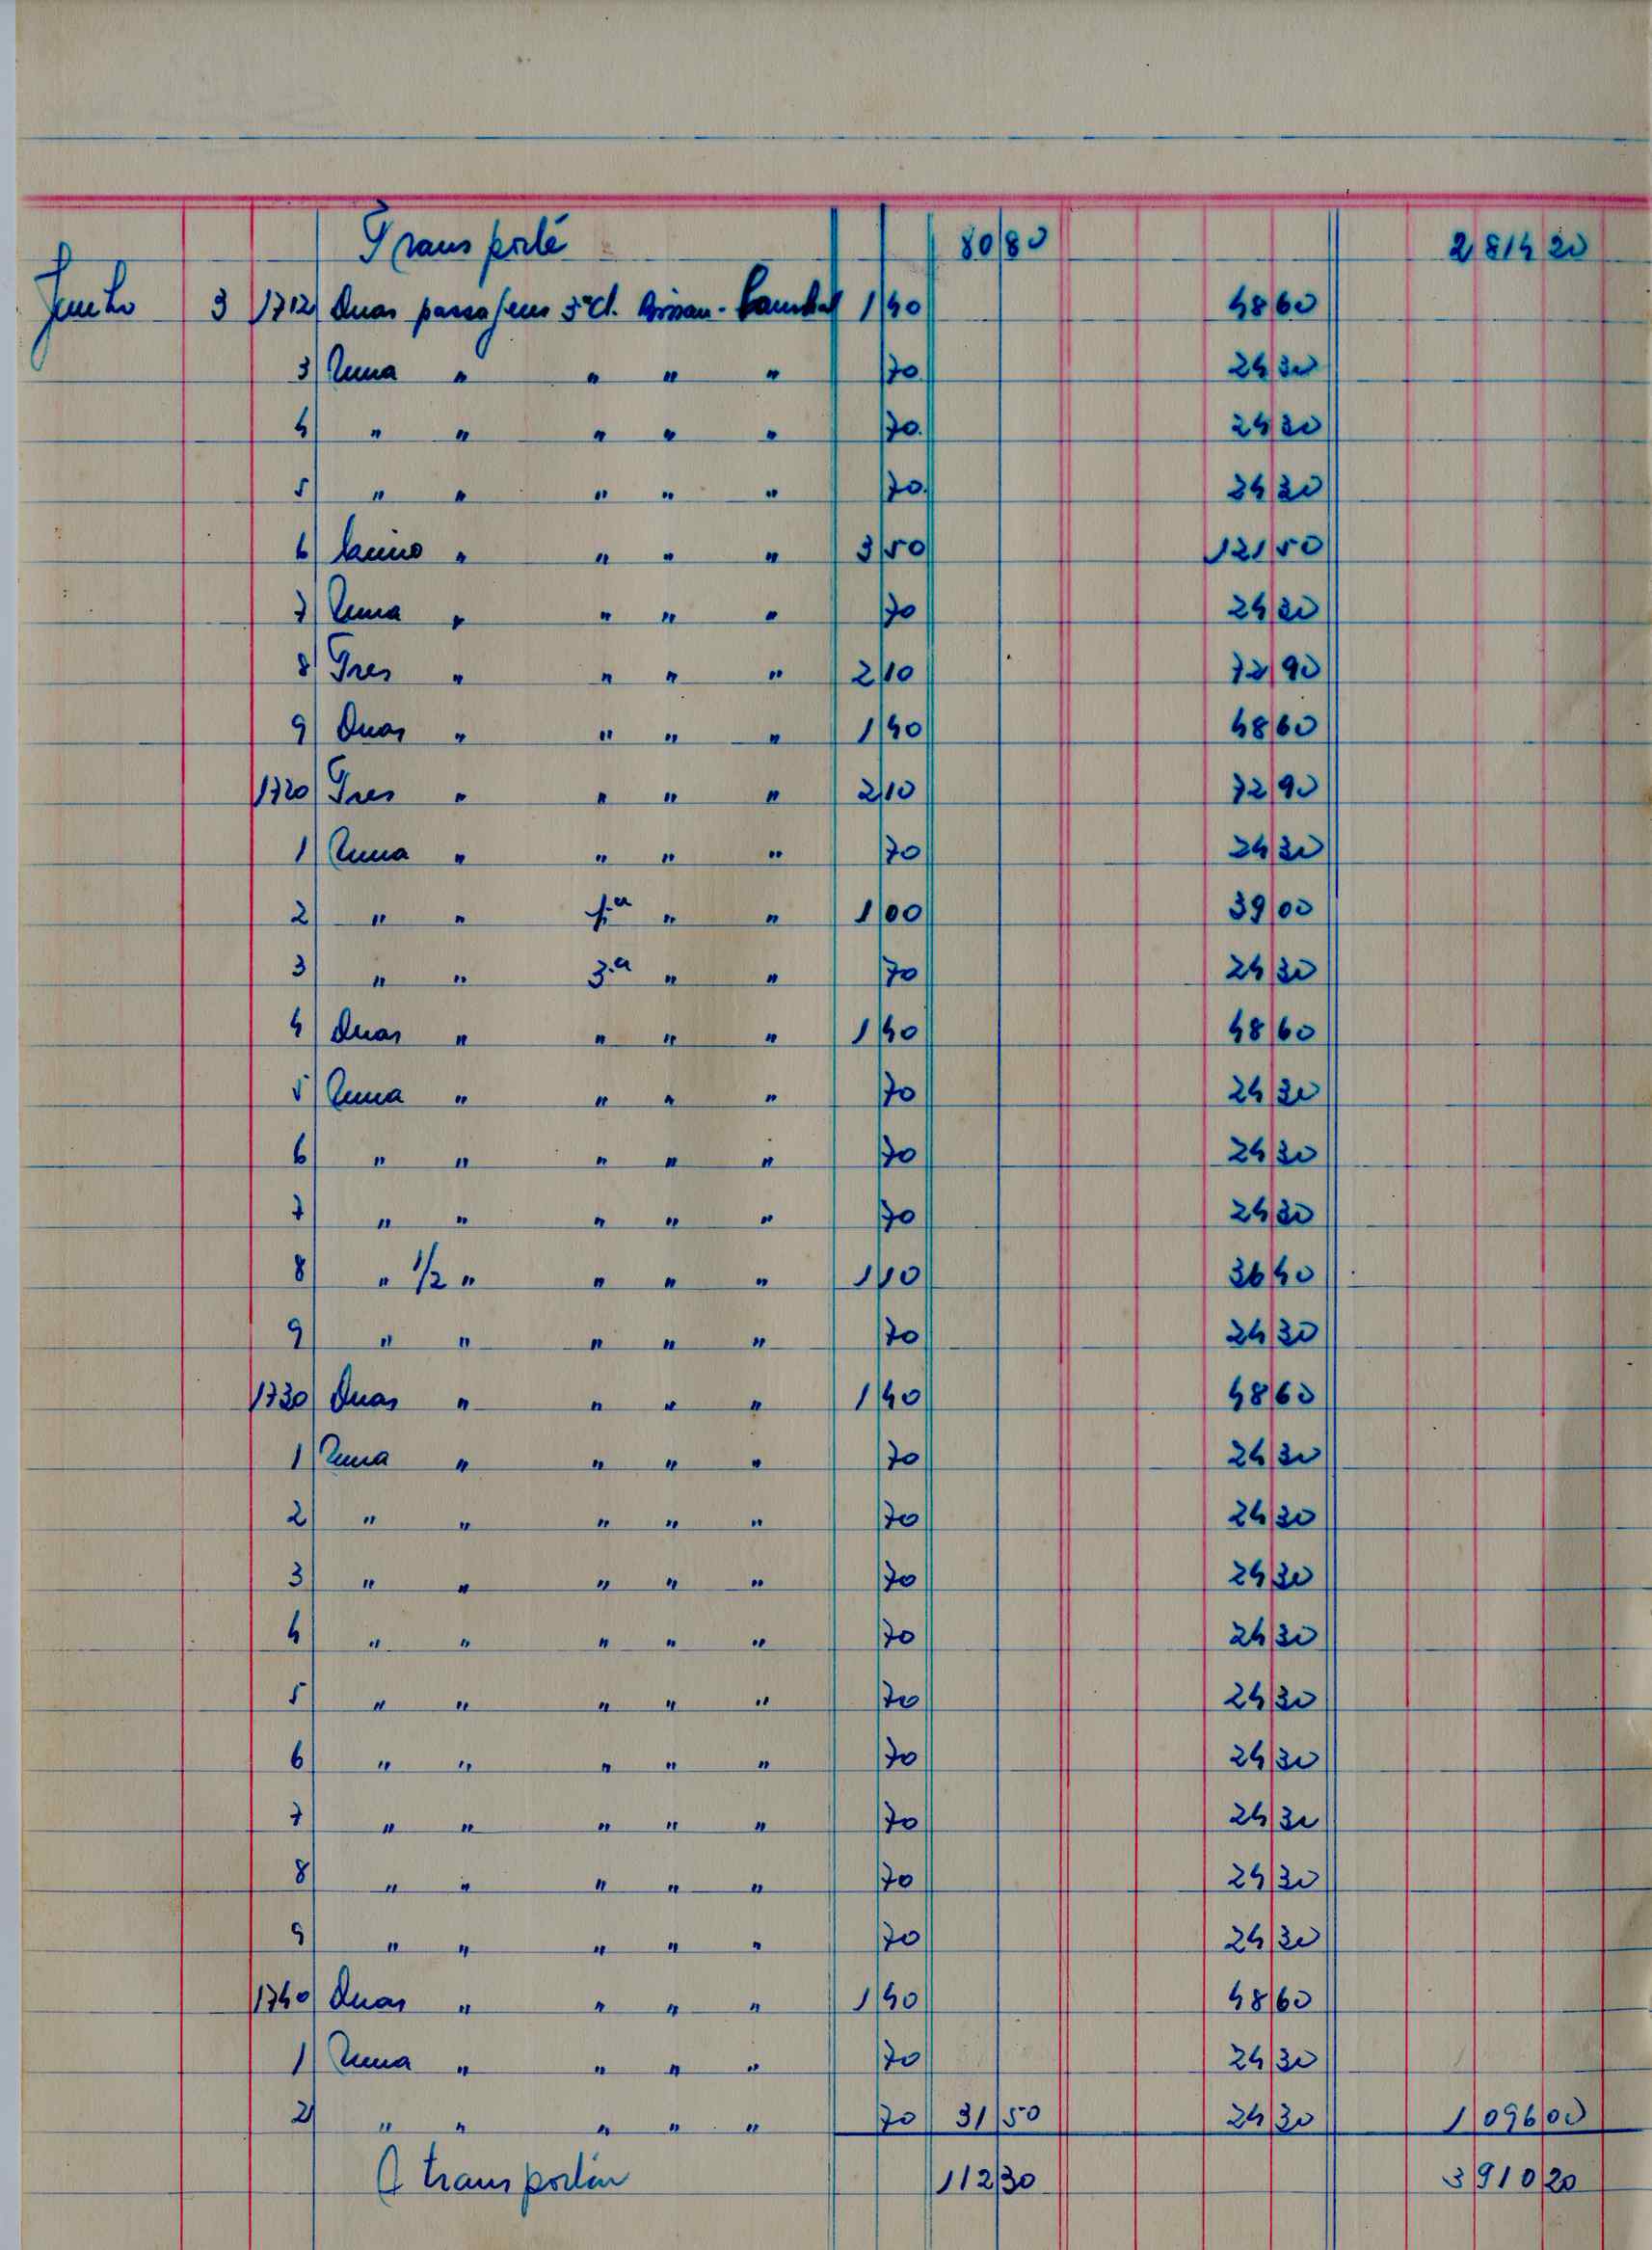 Transporte 80 80 2 814 20
Junho 3 1712 Duas passagens 3ª cl. Bissau - 1 40 48 60
3 Uma " " " " 70 24 30
4 " " " " " 70 24 30
5 " " " " " 70 24 30
6 Cinco " " " " 3 50 121 50
7 Uma " " " " 70 24 30
8 Tres " " " " 2 10 72 90
9 Duas " " " " 1 40 48 60
1720 Tres " " " " 2 10 72 90
1 Uma " " " " 70 24 30
2 " " 1.ª " " 1 00 39 00
3 " " 3.ª " " 70 24 30
4 Duas " " " " 1 40 48 60
5 Uma " " " " 70 24 30
6 " " " " " 70 24 30
7 " " " " " 70 24 30
8 " 1/2 " " " " 1 10 36 40
9 " " " " " 70 24 30
1730 Duas " " " " 1 40 48 60
1 Uma " " " " 70 24 30
2 " " " " " 70 24 30
3 " " " " " 70 24 30
4 " " " " " 70 24 30
5 " " " " " 70 24 30
6 " " " " " 70 24 30
7 " " " " " 70 24 30
8 " " " " " 70 24 30
9 " " " " " 70 24 30
1740 Duas " " " " 1 40 48 60
1 Uma " " " " 70 24 30
2 " " " " " 70 31 50 24 30 1 096 00
A transportar 112 30 3 910 20